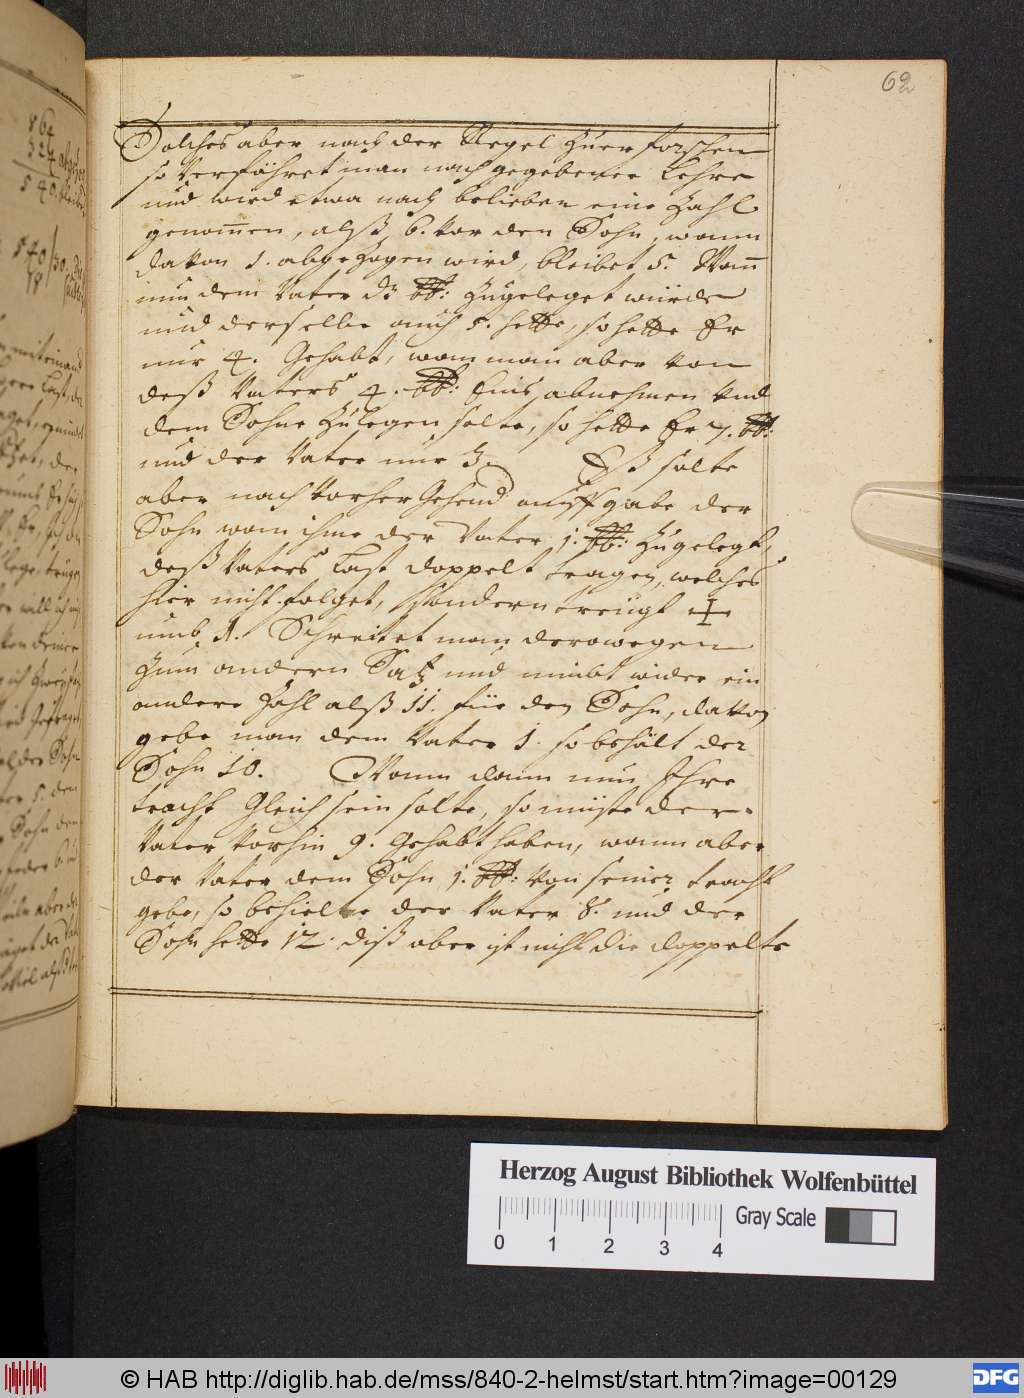 62
Solches aber nach der Regel Zuerforschen
so verfähret man nach gegebener Lehre
und wird etwa nach belieben eine Zahl
genom̄en, alß 6. vor den Sohn, wann
davon 1. abgezogen wird, bleibet 5. Wan̄
nun dem Vater ℔: Zugeleget würde
und derselbe auch 5. hette, so hette Er
nur 4. Gehabt, wan man aber von
deß Vaters 4. ℔: Eins abnehmen und
dem Sohne Zulegen solte, so hette Er 7. ℔:
und der Vater nur 3. Eß solte
aber nach vorherGehend auffgabe der
Sohn wan ihme der Vater 1. ℔: Zugelegt,
deß Vaters Last doppelt tragen, welches
hier nicht folget, sondern treugt +
umb 1. Schreitet man derowegen
Zum andern Satz und nimbt wider ein
andere Zahl alß 11. für den Sohn, davon
gebe man dem Vater 1. so behält der
Sohn 10. Wann dann nun Ihre
tracht Gleich sein solte, so müste der
Vater vorhin 9. Gehabt haben, wann aber
der Vater dem Sohn 1. ℔: von seiner tracht
gebe, so behielte der Vater 8. und der
Sohn hette 12. diß aber ist nicht die doppelte
864
324
540
540/30.
18
Herzog August Bibliothek Wolfenbüttel
Gray Scale
0 1 2 3 4
© HAB http://diglib.hab.de/mss/840-2-helmst/start.htm?image=00129
DFG